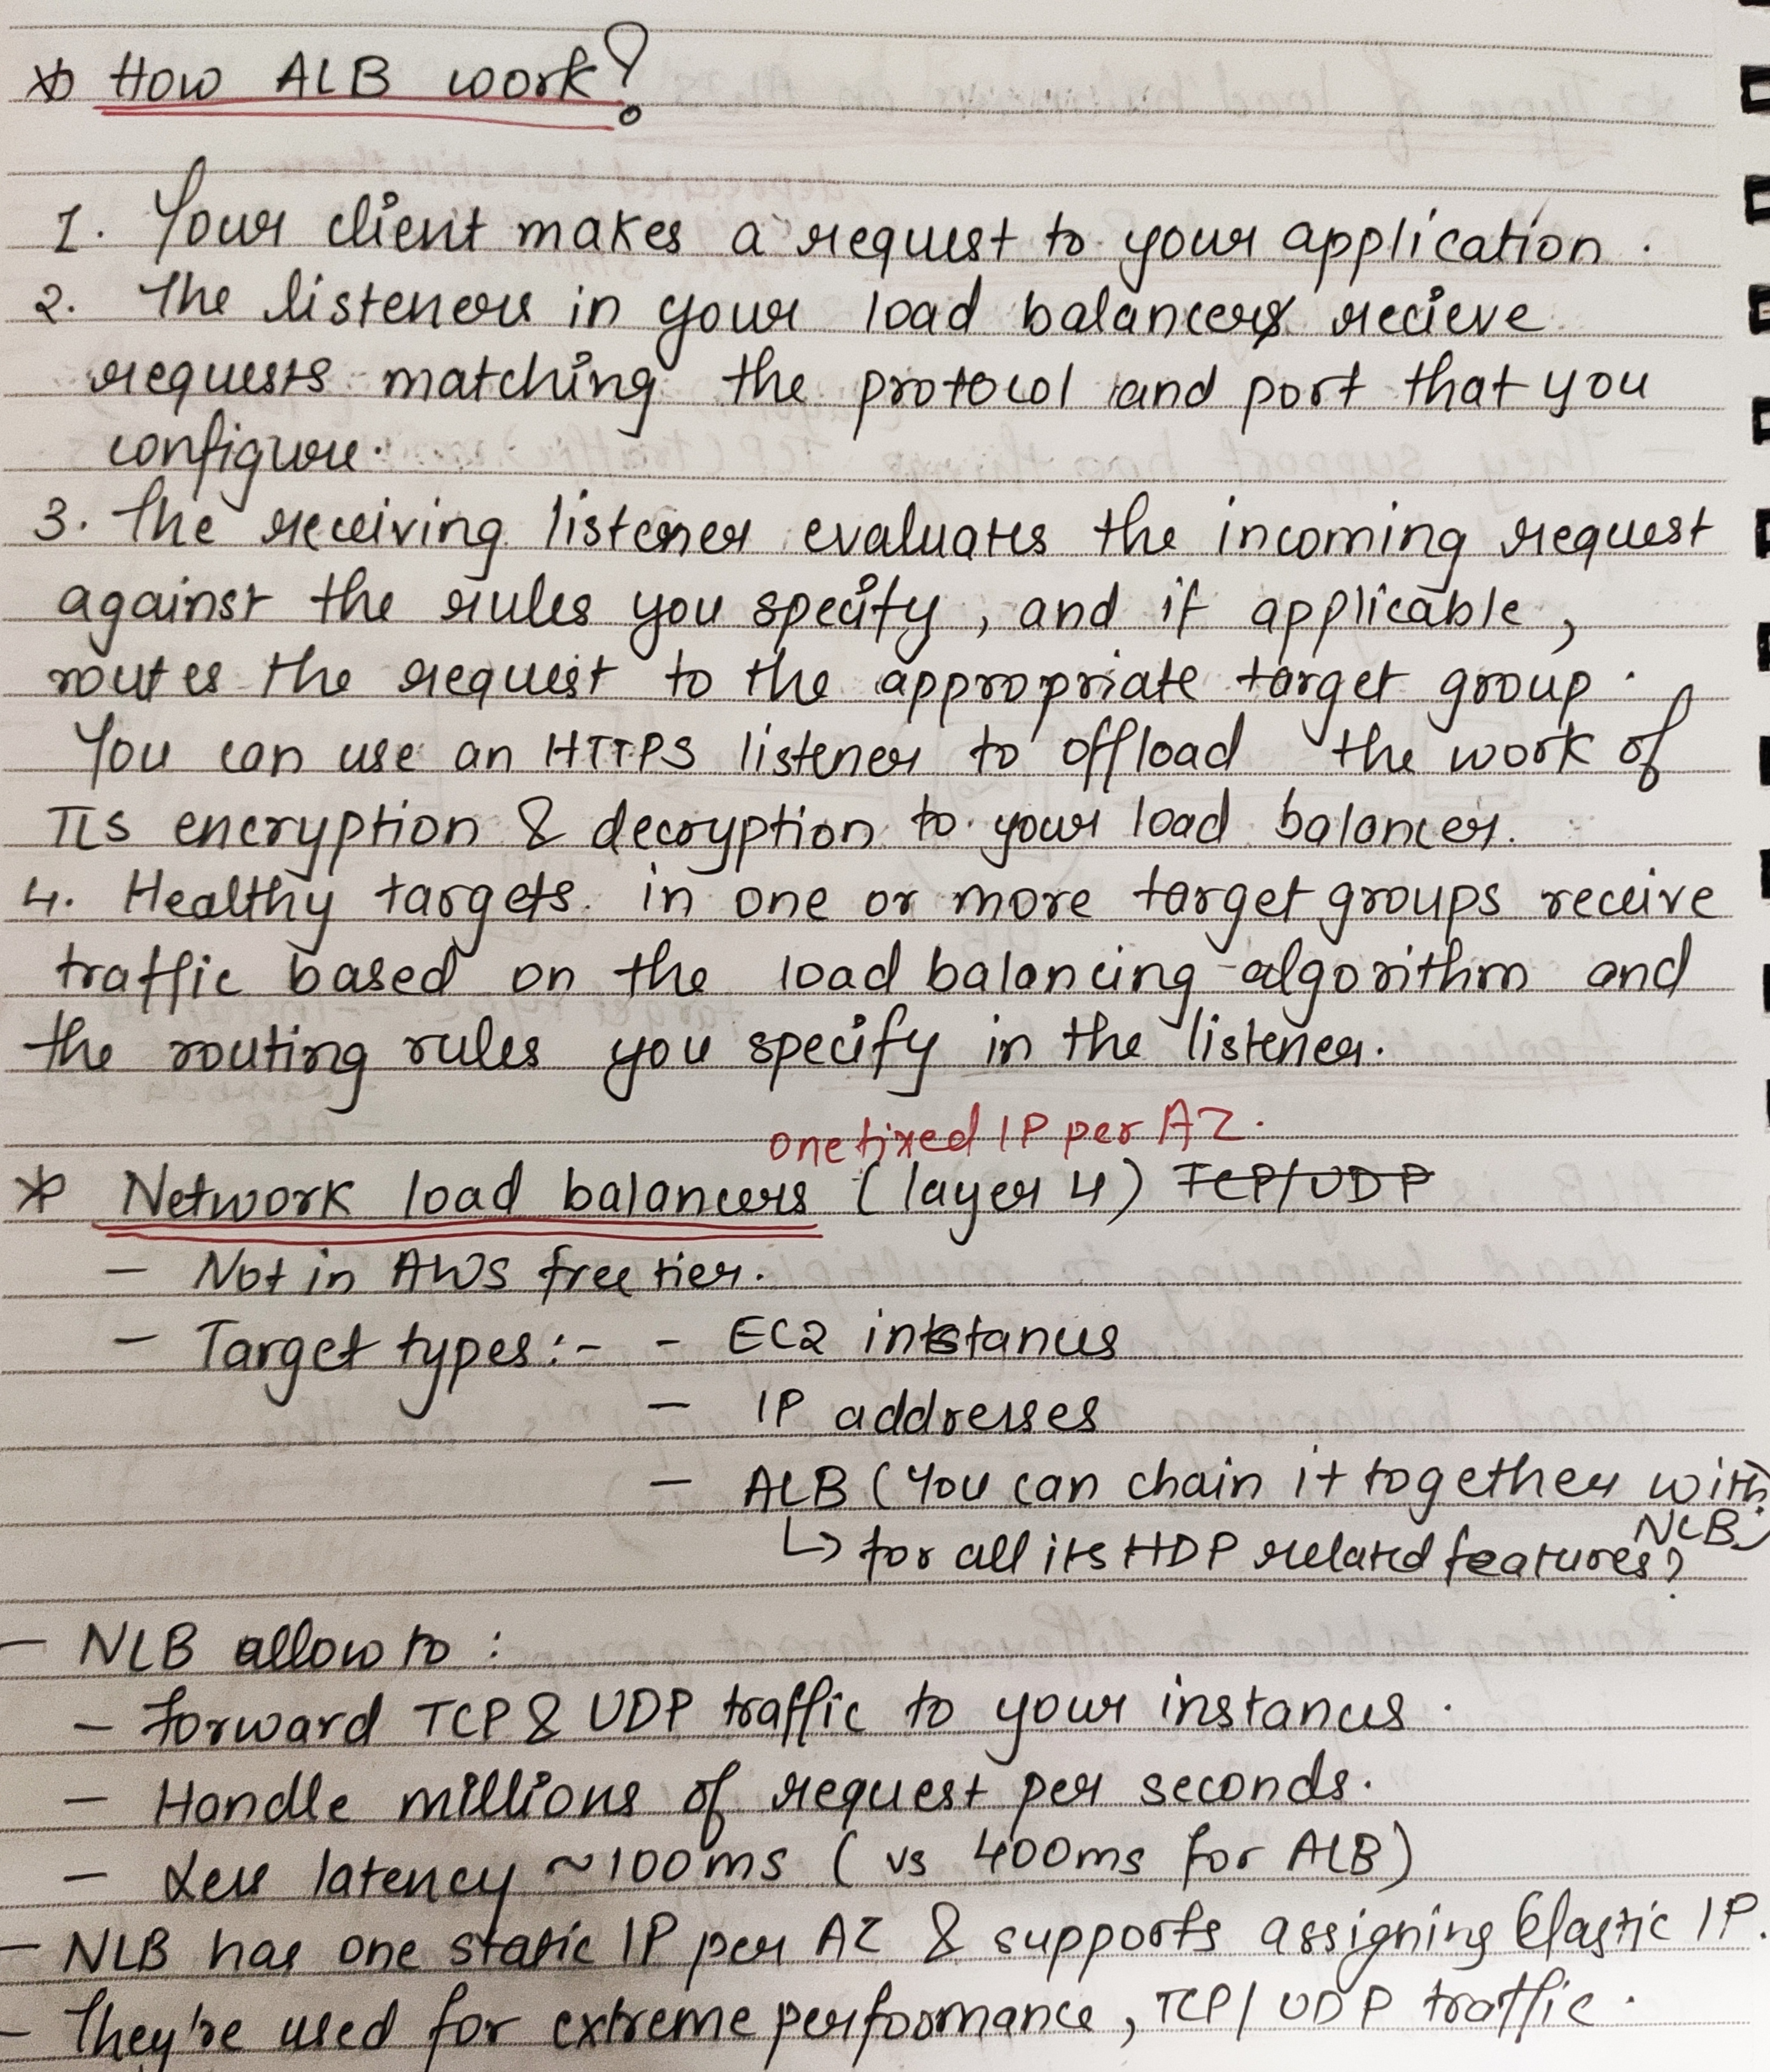 * How ALB work?
1. Your client makes a request to your application.
2. The listeners in your load balancers recieve
requests matching the protocol and port that you
configure.
3. The receiving listener evaluates the incoming request
against the rules you specify, and if applicable,
routes the request to the appropriate target group.
You can use an HTTPS listener to offload the work of
TLS encryption & decryption to your load balancer.
4. Healthy targets in one or more target groups receive
traffic based on the load balancing algorithm and
the routing rules you specify in the listener.
one fixed IP per AZ.
* Network load balancers (layer 4) TCP/UDP
- Not in AWS free tier.
- Target types:- - EC2 instances
- IP addresses
- ALB (You can chain it together with
NLB)
↳ for all its HDP related features?
- NLB allow to :
- Forward TCP & UDP traffic to your instances.
- Handle millions of request per seconds.
- Less latency ~100ms (vs 400ms for ALB)
- NLB has one static IP per AZ & supports assigning Elastic IP.
- They're used for extreme performance, TCP/UDP traffic.